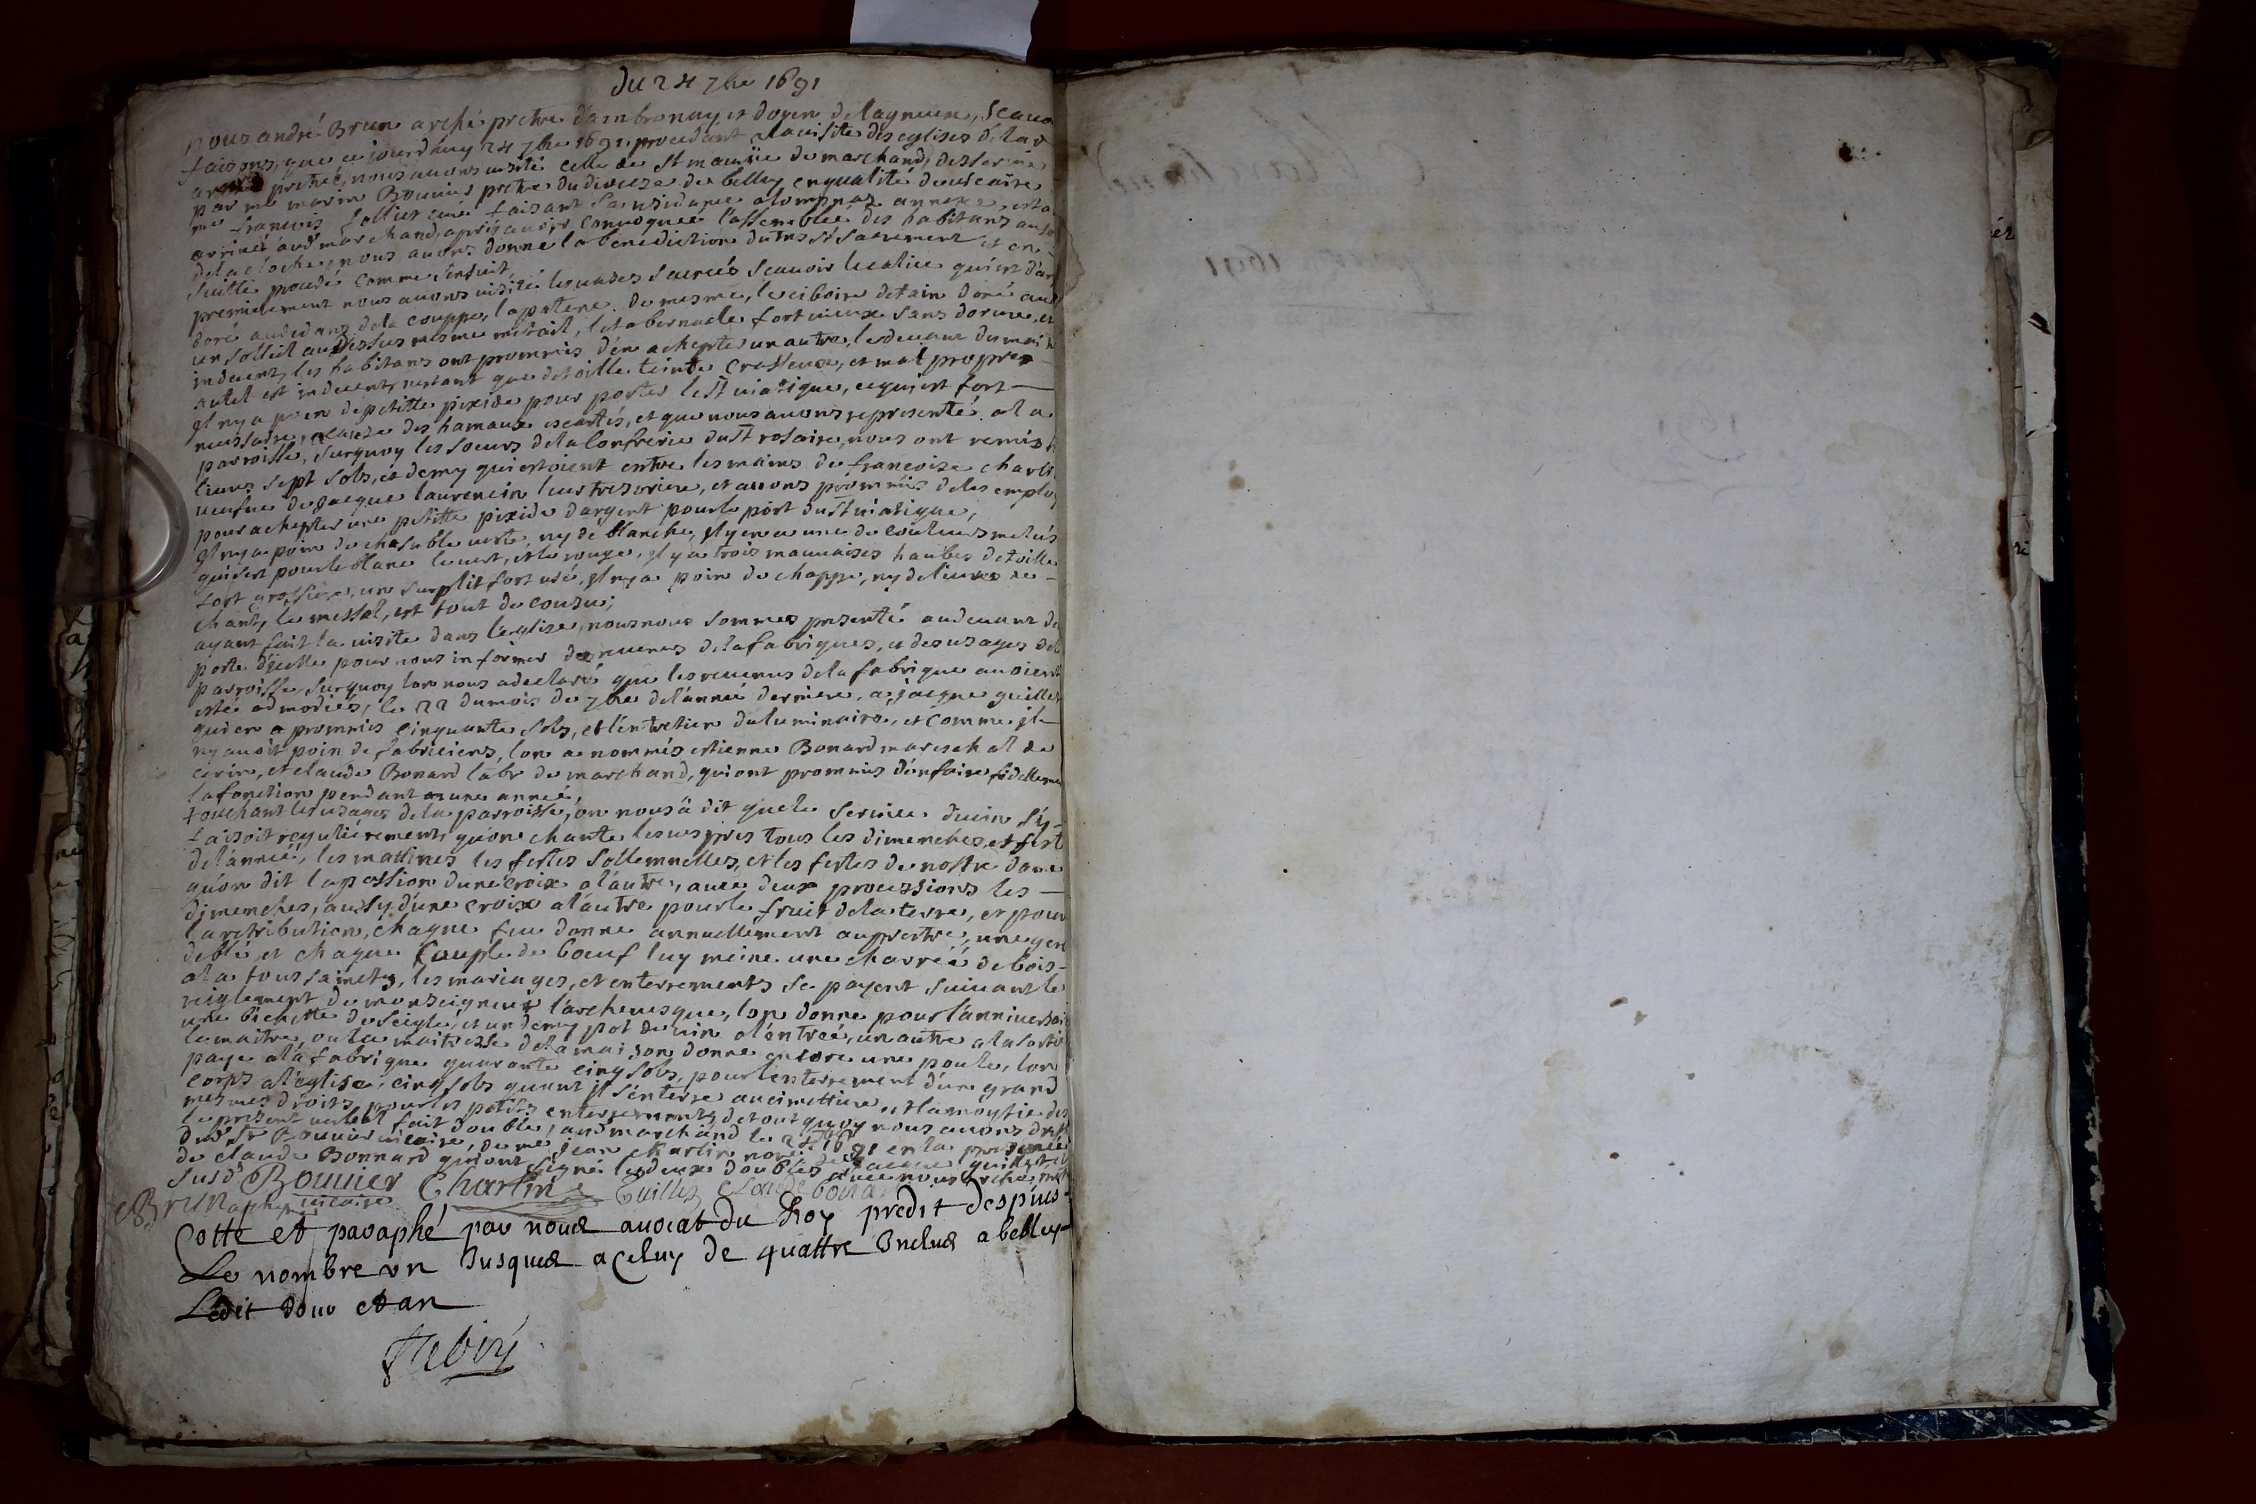 du 24 7bre 1691
nous andré Brun arché pretre d'ambronay, et doyen de lagneux, scauoir
faisons, que ce jourd'huy 24 7bre 1691, procedant a la uisite des eglises de la d
arché pretré, nous auons uisité celle de st maurice de marchand, desseruie
par me marin Bouuier pretre du dioceze de belley en qualité de uicaire
me françois curé faisant sa residance a lompnaz annexe, estant
arriué aud marchand, apres auoir conuoquée l'assemblée des habitans au so
de la cloche, nous auons donné la benediction du tres st sacrement et en
suitte procedé comme s'ensuit
premierement nous auons uisité les uases sacrés scauoir le calice qui est d'ar
doré au dedans de la couppe, la patene de mesme, le ciboire detain doré au
un solleil au dessus mesme mestail, le tabernacle fort uieux sans dorure, et
indecent, les habitans ont prommis d'en achepter un autre, le deuant du mai
autel est indecent, n'estant que de toille teinte crasseux, et mal propre
Il n'y a poin de petitte pixide pour porter le st uiatique, ce qui est fort
necessaire, a cause des hamaux escartés, et que nous auons representé a la
parroisse, surquoy les soeurs de la Confrerie du st rosaire, nous ont remis
liures sept sols, et demy qui estoient entre les mains de françoise charl
ueufue de Jacque laurencin leur tresoriere, et auons prommis de les employ
pour achepter une petitte pixide d'argent pour le port du st uiatique,
Il n'y a poin de chasuble uerte, ny de blanche, il y en a une de couleurs melés
qui sert pour le blanc le uert, et le rouge, il y a trois mauuaises haubes de toille
fort grossiere, un surplit fort usé, il n'y a poin de chappe, ny de liures de
chant, le messel, est tout decousu;
ayant fait la uisite dans l'eglise, nous nous sommes presenté au deuant de
porte d'icelle pour nous informer des reuenus de la fabriques, et des usages de l
parroisse, surquoy l'on nous a declaré que les reuenus de la fabrique auoient
esté admodiés, le 22 du mois de 7bre de l'année derniere, a Jacque guillet
qui en a prommis cinquante sols, et l'entretien du luminaire, et comme il
n'y auoit poin de fabriciens, l'on a nommés estienne Bonard mareschal de
cerin, et claude Bonard labr de marchand, qui ont prommis d'en faire fidellement
la fonction pendant une année,
touchant les usages de la parroisse, on nous a dit que le seruice diuin s'y
faisoit regulierement, qu'on chante les uespres tous les dimenches, et fest
de l'année, les mattines les festes sollemnelles, et les festes de nostre dame
qu'on dit la passion d'une croix a l'autre, auec deux processions les
dimenches, aussy d'une croix a l'autre pour le fruit de la terre, et pour
la retribution, chaque feu donne annuellement au prestre, une ger
de blé et chaque couple de boeuf luy meine une charrée de bois
a la toussaincts, les mariages, et enterrements se payent suiuant le
reiglement de monseigneur l'archeuesque, l'on donne pour l'anniuersai
une bichette de seigle, et un demy pot de uin a l'entrée, un autre a la sortie
le maitre, ou la maitresse de la maison donne encore une poule, l'on
paye a la fabrique quarante cinq sols, pour l'enterrement d'un grand
corps a l'eglise, cinq sols quant il s'enterre au cimettiere, et la moytié des
mesmes droits, pour les petits enterrements, de tout quoy nous auons dressé
le present uerbal fait double, aud marchand le 24 7bre 1691 en la presence
dud sr Bouuier uicaire, de me Jean charlin nore de Jacque guillet et
de claude Bonnard qui ont signé les deux doubles auec nous arche pret
susd
Brun archip Bouuier uicaire Charlin Guillet Claude bonar
Cotte et paraphé par nous auocat du Roy predit despuis
Le nombre un Jusques a Celuy de quattre Inclus a belley
Ledit Jour et an